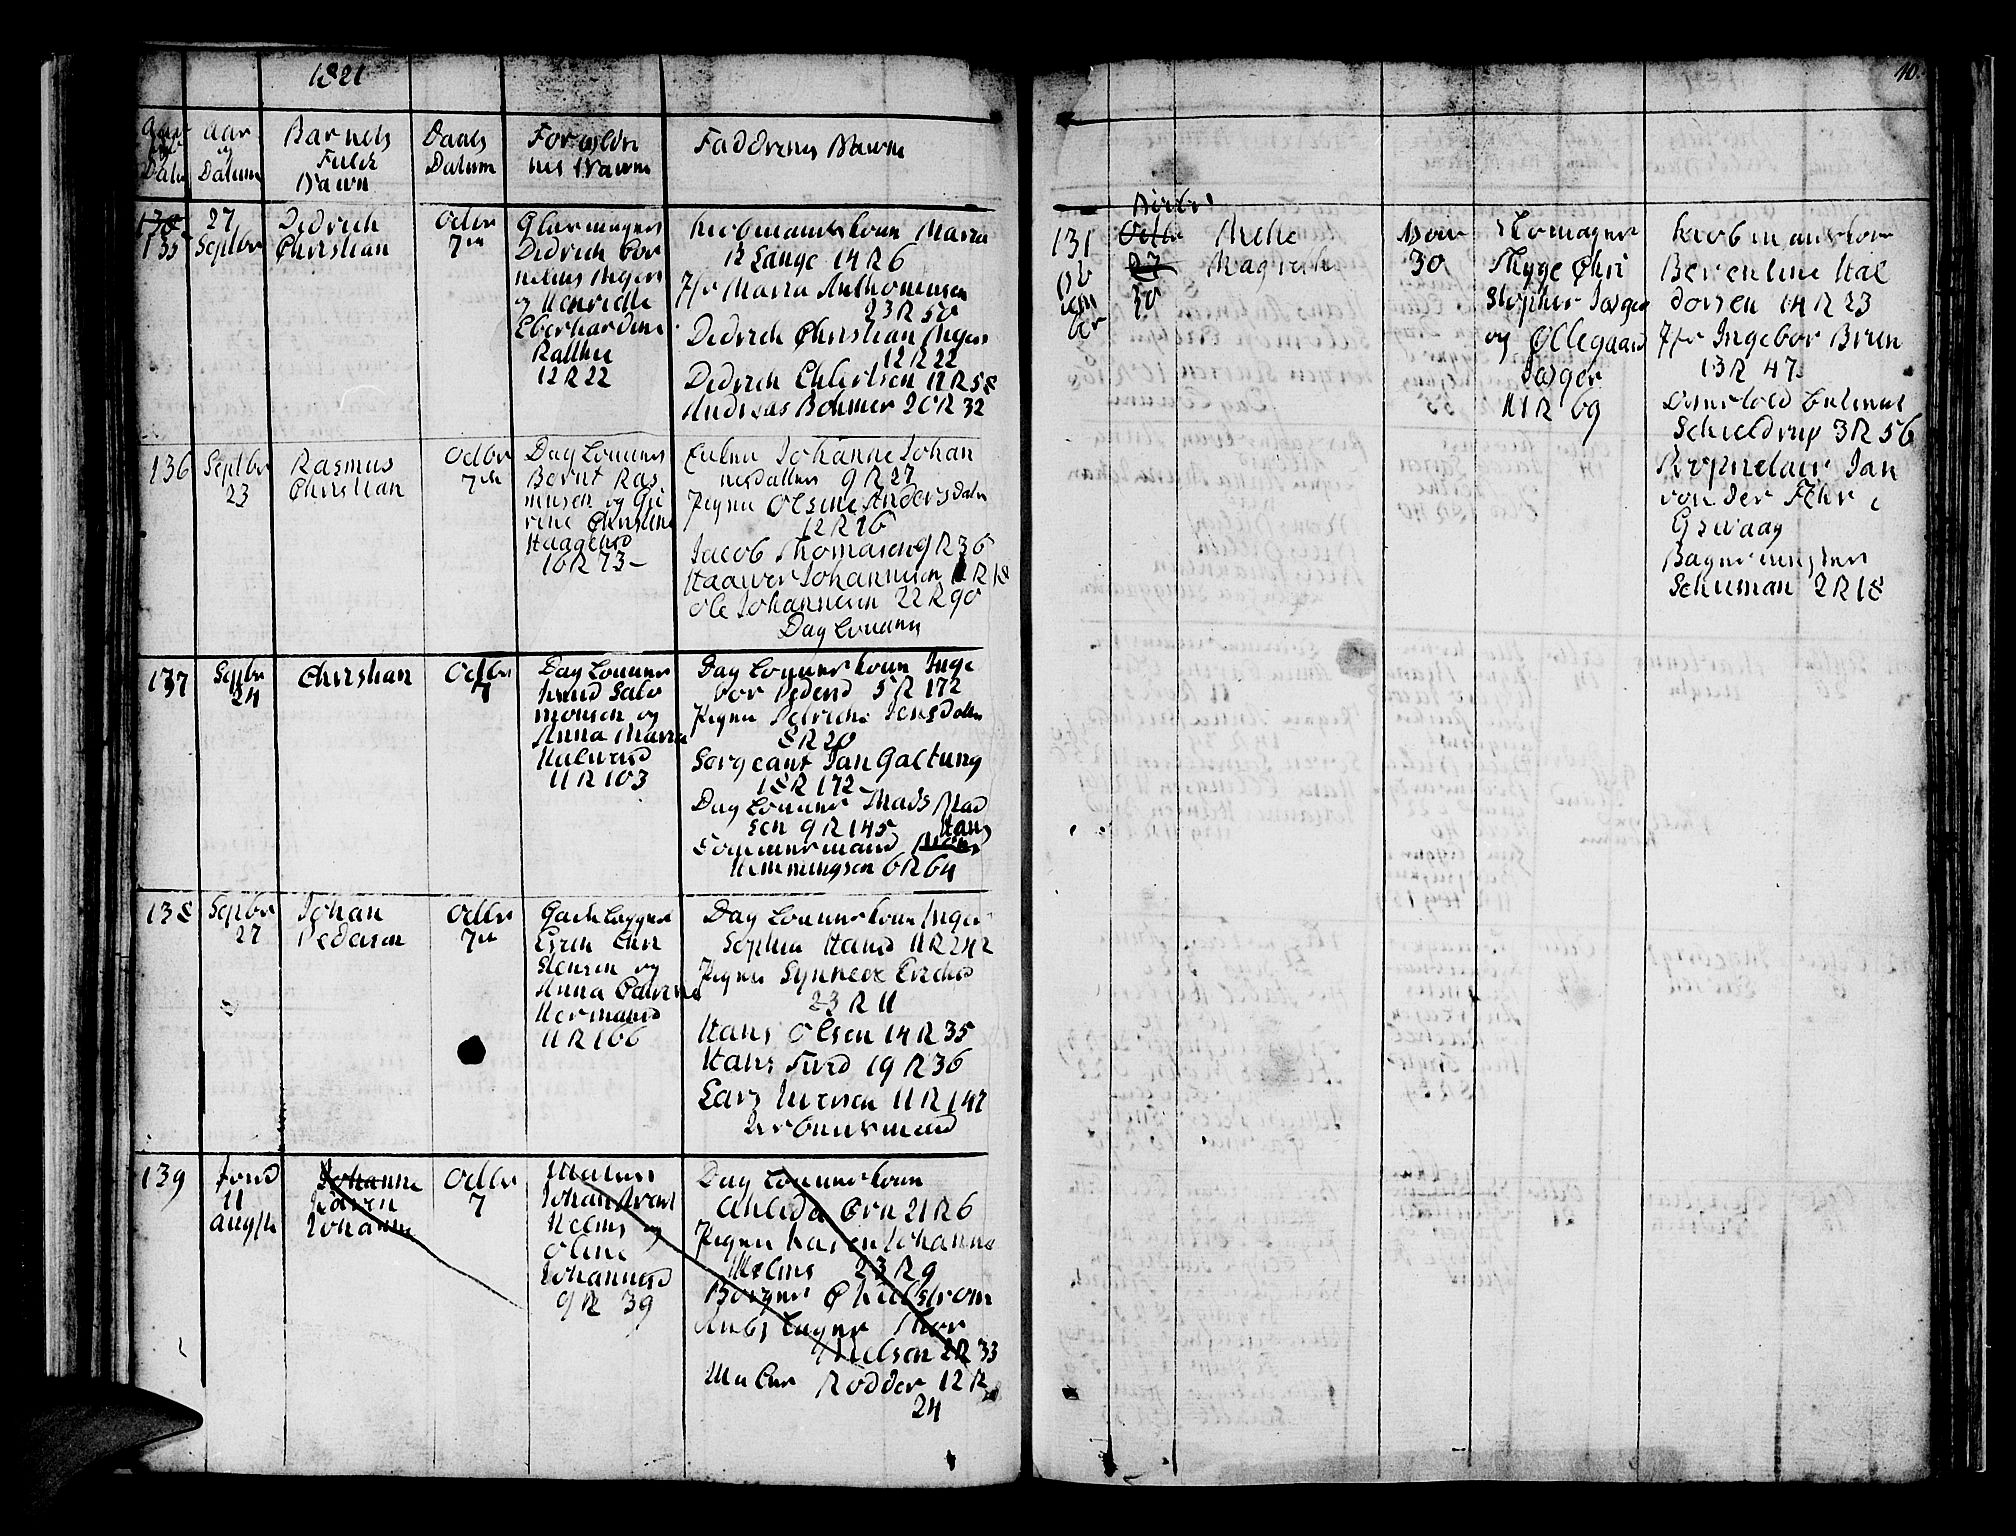 1821
Aar
og
Datum
Barnets
Fulde
Nawn
Daabs
Datum
Forældre
nes Nawne
Faddrenes Nawne
135
27
Septbr
Didrich
Christian
Octbr
7de
Glarmager
Didrich Cor
nelius Meyer
og Henriette
Eberhardine
Ratthie
12 R 22
Kiøbmandskone Maria
R Lange 14 R 6
Jfr Maria Anthonensen
23 R 50
Didrich Christian Meyer
12 R 22
Didrich Ehlertsen 11 R 58
Andreas Bohmer 20 R 32
136
Septbr
23
Rasmus
Christian
Octbr
7de
Daglønner
Bernt Ras
musen og
Christine
10 R 73
Johanne Johan
nesdatter 9 R 27
Pigen Olsine Andersdatter
12 R 16
Jacob Thomasen 9 R 36
Haawer Johannesen R 18
Ole Johannesen 22 R 90
Daglønner
137
Septbr
24
Christian
Octbr
7
Daglønner
Knud Salo
monsen og
Anna Maria
Halword
11 R 103
Daglønnerkone Inge
bor Pedersd 5 R 172
Pigen Petriche Jensdatter
8 R 20
Sergeant Jan Galtung
18 R 172
Daglønner Mads Mad
sen 9 R 145
Tømmermand Hans
Hemmingsen 6 R 64
138
Septbr
27
Johan
Pedersen
Octbr
7de
Gadelægger
Chri
stensen og
Anna
Hermansd
11 R 166
Daglønnerkone Inger
Sophia Hansd 11 R 242
Pigen Synneve
23 R 11
Hans Olsen 14 R 35
Hans Sivrd 19 R 36
Lars Iversen 11 R 147
139
11
Augst
Johanne
Karen
Johanne
Octbr
7
Maler
Johan
Helms og
Oline
Johannesd
9 R 39
Daglønnerkone
Ahleda Orn 21 R 6
Pigen Karen Johanne
Helms 23 R 9
Borger Chielstrøm
Thor
Nielsen 2 R 33
Maler Rødder 12 R
24
40
131
No
vem
ber
Octbr
27
30
Mette
Magrethe
Novr
30
Skomager
Thyge Chri
stopher Jæger
og Ollegaard
Jæger
11 R 69
Kiøbmandskone
Berentine Hal
dorsen 14 R 23
Jfr Ingebor Brun
13 R 47
Schieldrup 3 R 56
Proprietair Jan
von der Fehr i
Grwaag
Bagermester
Schuman 2 R 18